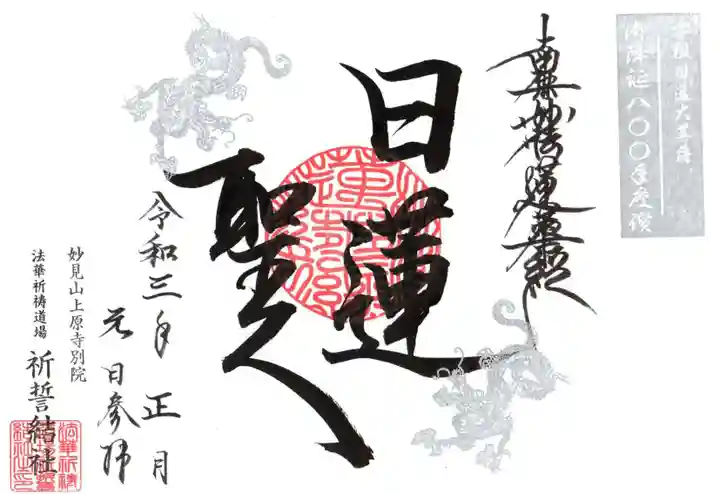 宗祖日蓮大聖人
御降誕八〇〇年慶讃
南無妙法蓮華経
日蓮
聖人
令和三年 正月
元日参拝
妙見山上原寺別院
法華祈祷道場 祈誓結社